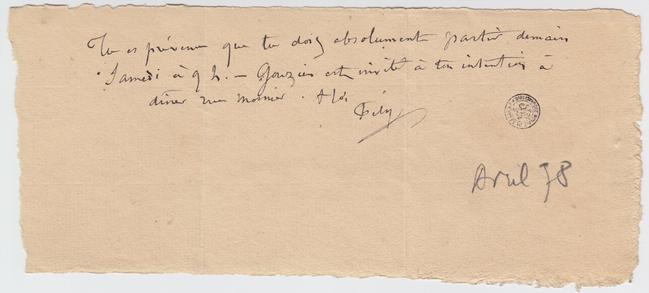 Tu es prévenu que tu dois absolument partir demain
Samedi à 9 h. — Gouzien est invité à ton intention à
dîner rue Mosnier. À toi
Fély
Avril 78